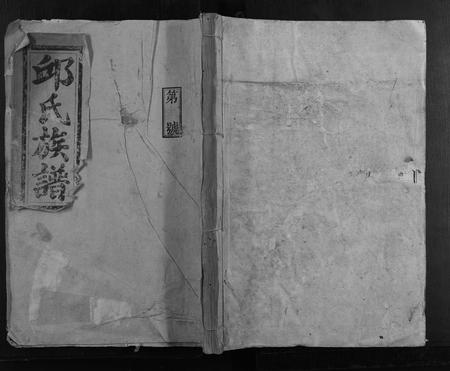 邱氏族譜
第號